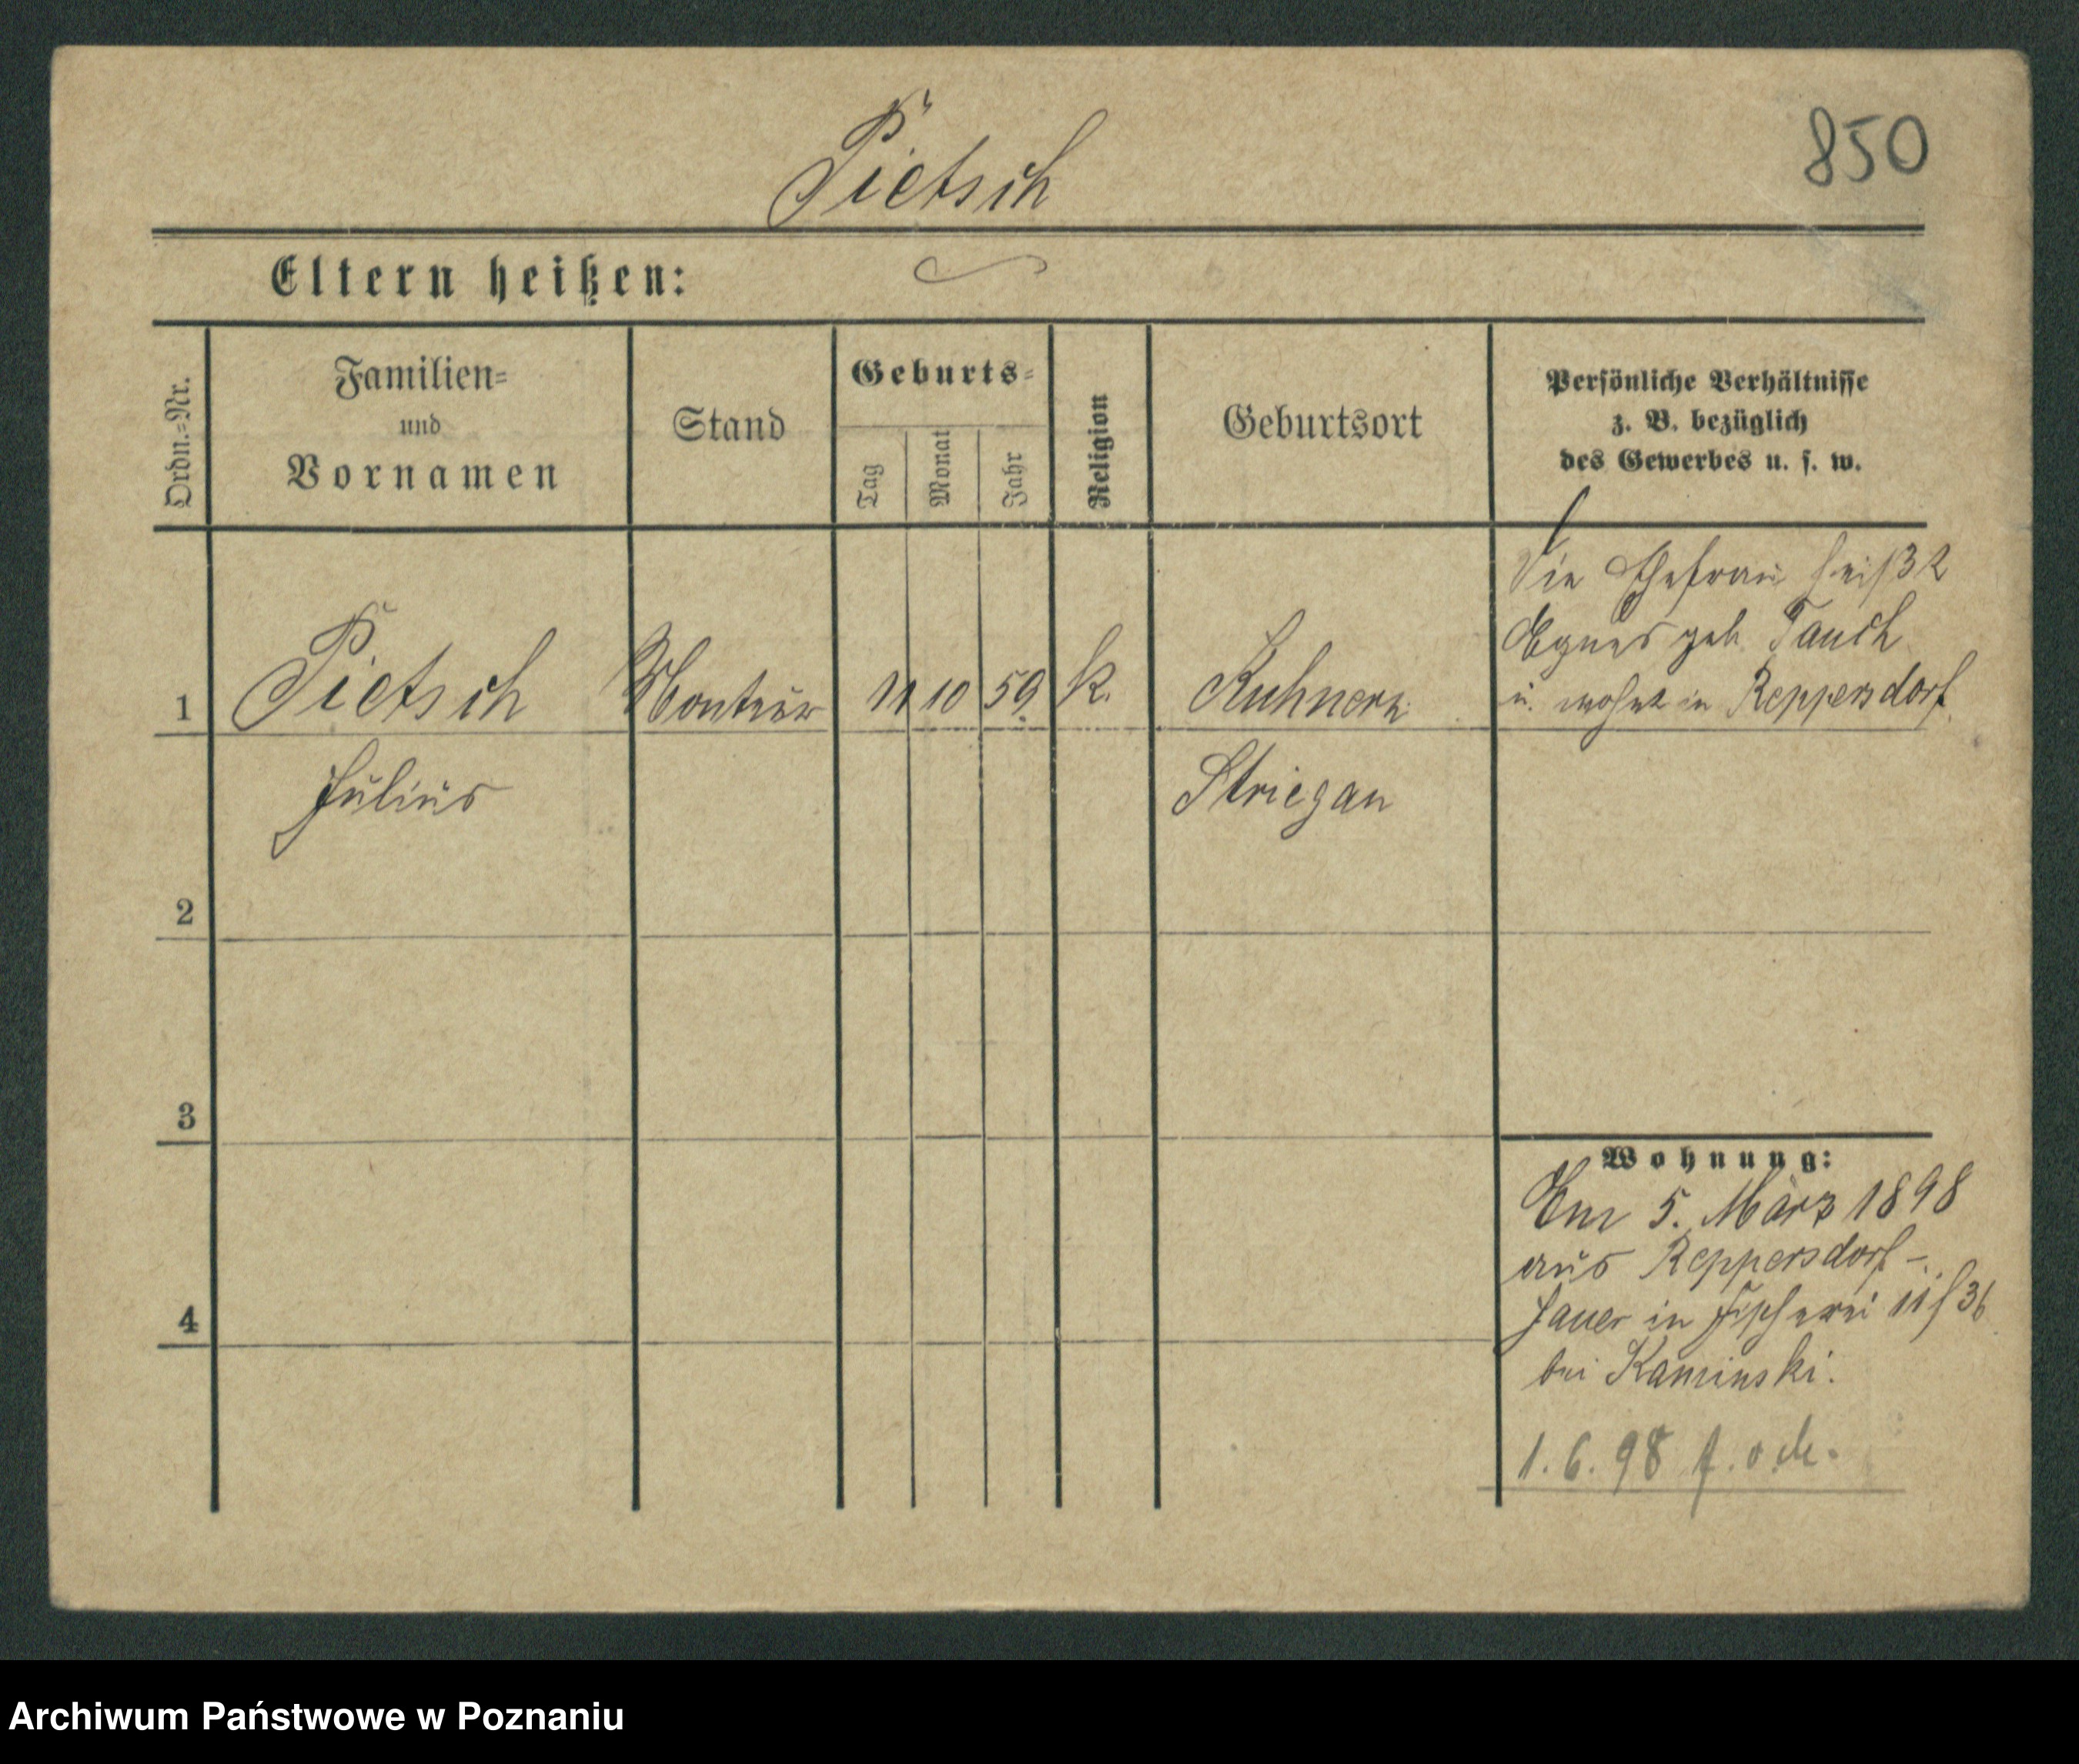 Pietsch
850
Eltern heißen:
Ordn.=Nr.
Familien=
und
Vornamen
Stand
Geburts=
Tag
Monat
Jahr
Religion
Geburtsort
Persönliche Verhältnisse
z. B. bezüglich
des Gewerbes u. s. w.
1
Pietsch
Monteur
11
10
59
k.
Kuhnern
Die Ehefrau heißt
Agnes geb. Tauch
u. wohnt in Reppersdorf
Julius
Striegau
2
3
4
Wohnung:
Am 5. März 1898
aus Reppersdorf-
Jauer in Fischerei
bei Kaminski.
1.6.98
Archiwum Państwowe w Poznaniu